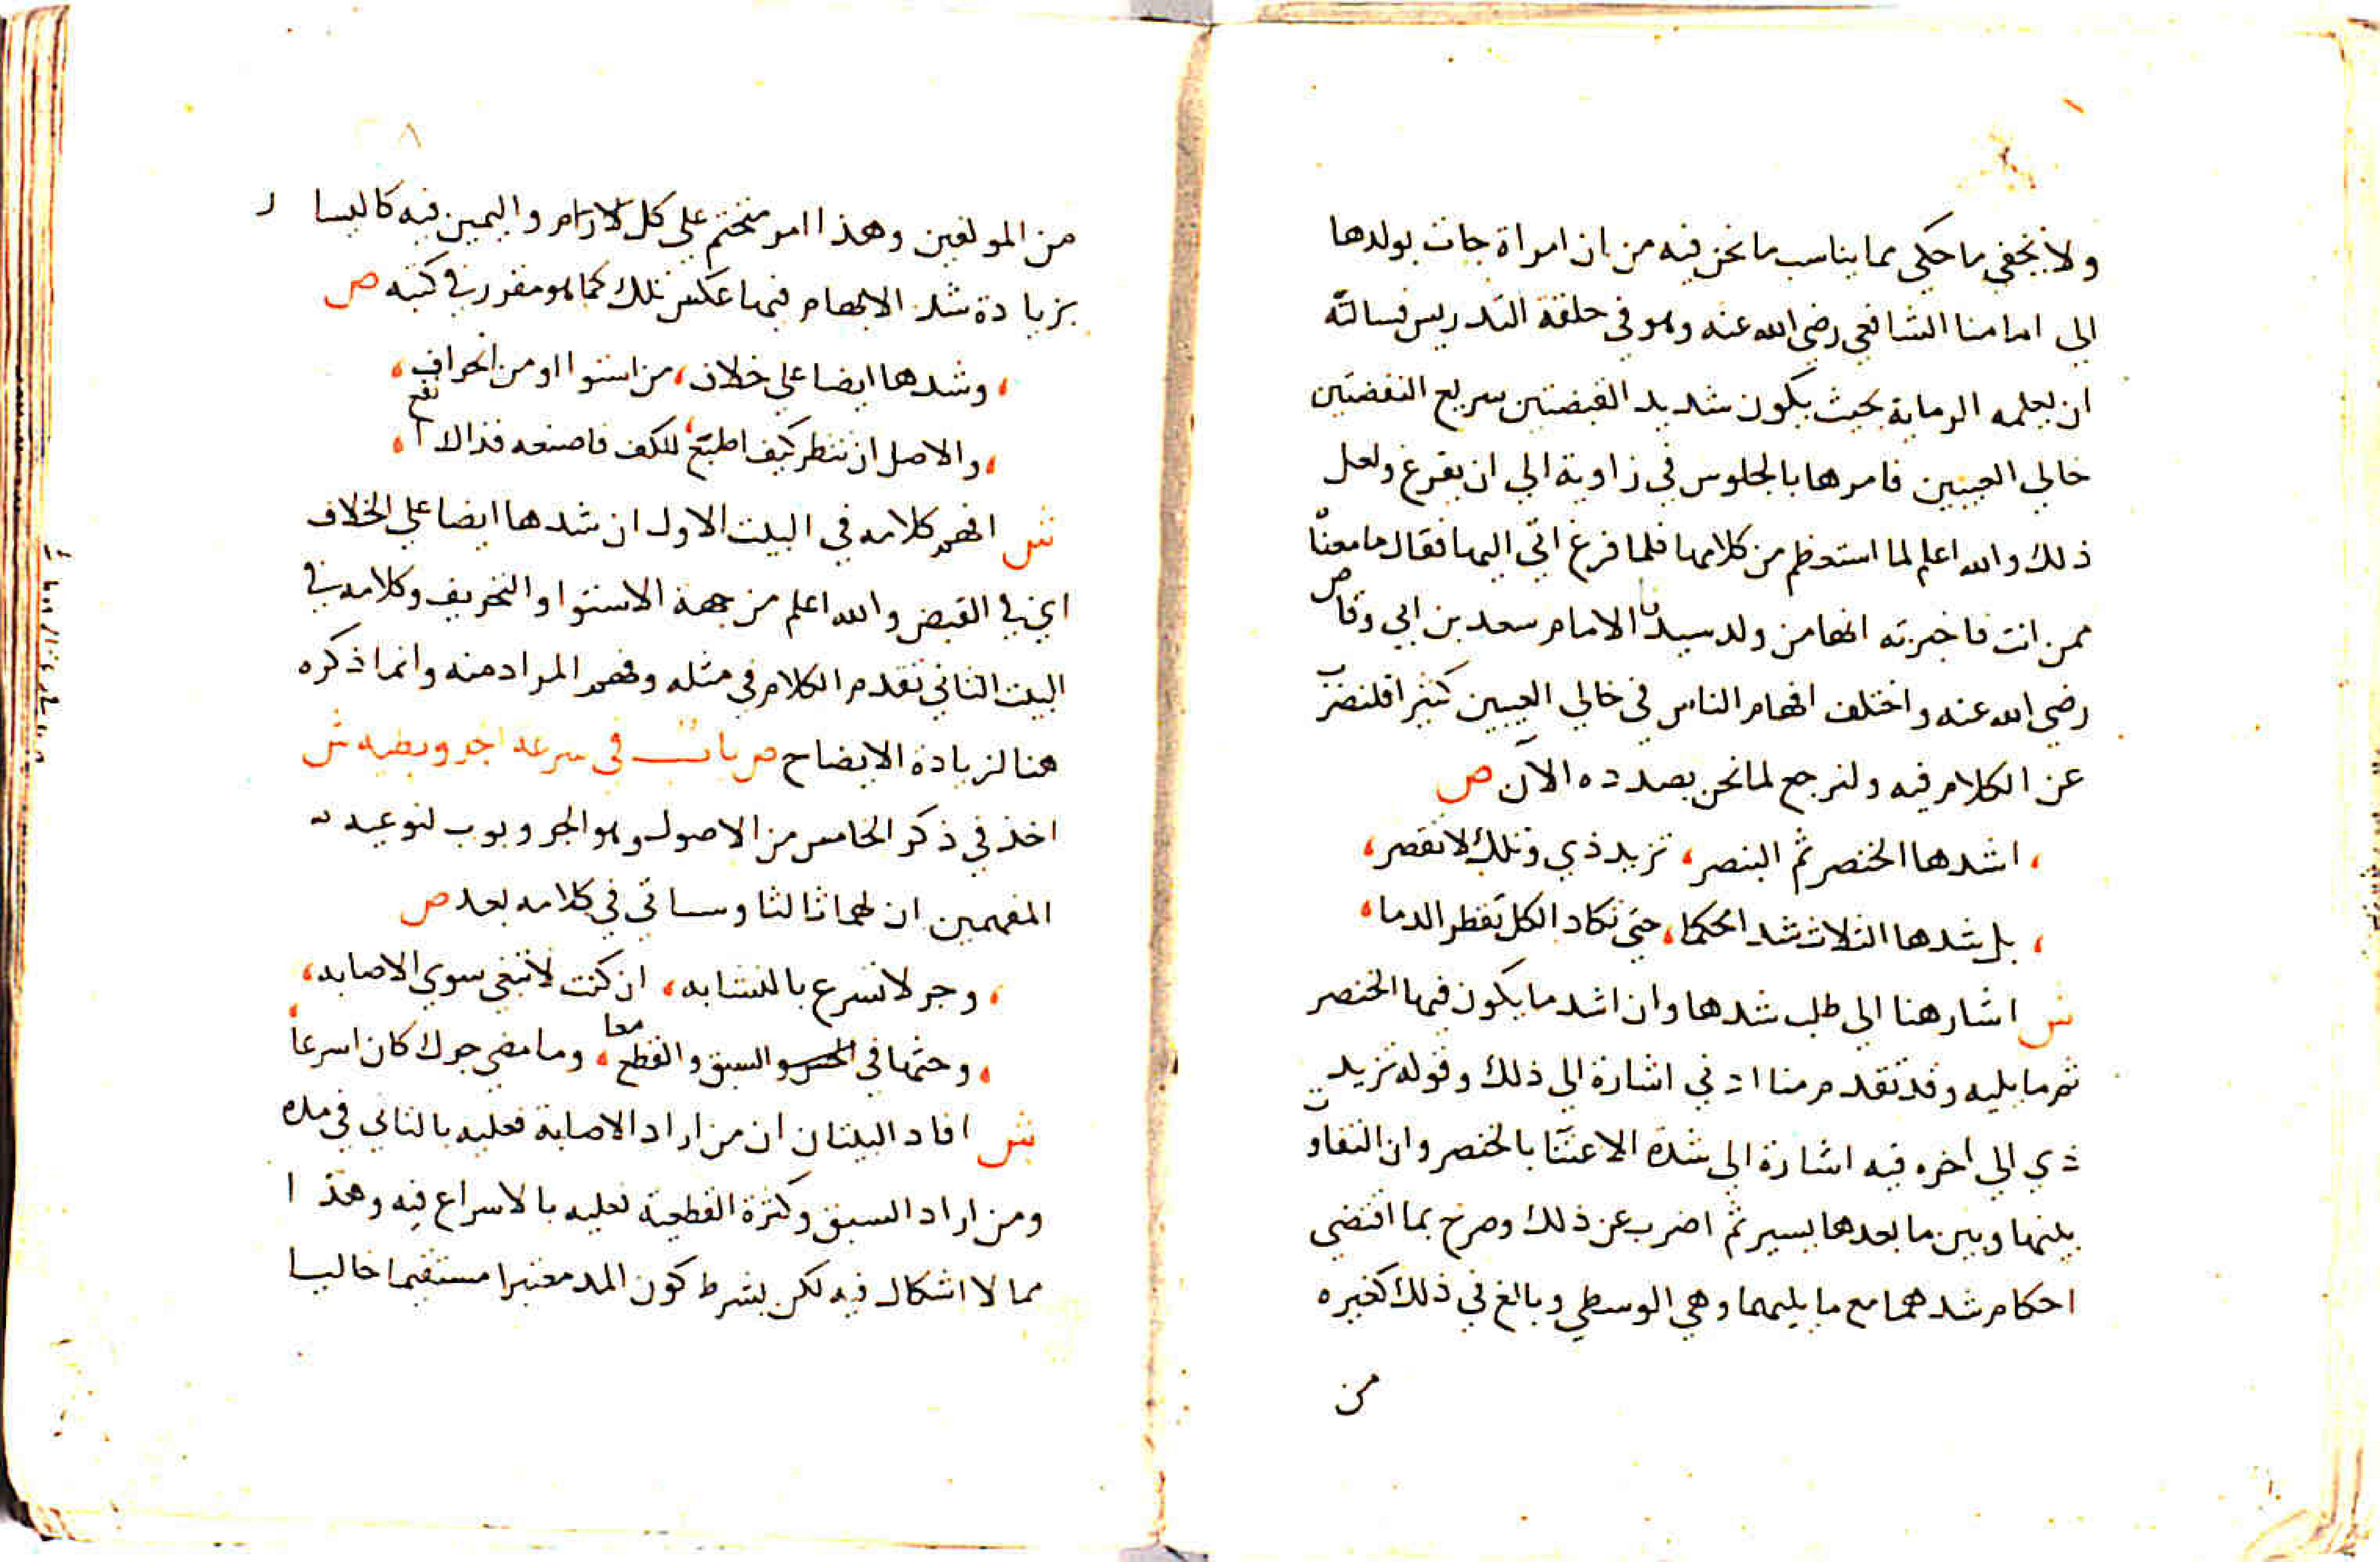 ولا يخفي ما حكي مما يناسب ما نحن فيه من ان امراة جات بولدها
الي امامنا الشافعي رضي الله عنه وهو في حلقة التدريس فسالته
ان يعلمه الرماية بحيث يكون شديد القبضتين سريع النفضتين
خالي العيبين فامرها بالجلوس في زاوية الي ان يفرغ ولعل
ذلك والله اعلم لما استعظم من كلامها فلما فرغ اتي اليها فقال ما معنا
ممن انت فاخبرته انها من ولد سيدنا الامام سعد بن ابي وقاص
رضي الله عنه واختلف افهام الناس في خالي العيبين كثيرا فلنضرب
عن الكلام فيه ولنرجع لما نحن بصدده الآن ص
، اشدها الخنصر ثم البنصر، تزيد ذي وتلك لا تقصر،
، بل شدها الثلاث شدا محكما، حتي تكاد الكل تقطر الدما،
ش اشار هنا الي طلب شدها وان اشد ما يكون فيها الخنصر
ثم ما يليه وقد تقدم منا ادني اشارة الي ذلك وقوله تزيد
ذي الي اخره فيه اشارة الي شدة الاعتنا بالخنصر وان التفاوت
بينها وبين ما بعدها يسير ثم اضرب عن ذلك وصرح بما اقتضي
احكام شدهما مع ما يليهما وهي الوسطي وبالغ في ذلك كغيره
من
من المولفين وهذا امر متحتم علي كل لازام واليمين فيه كاليسار
بزيادة شد الابهام فيها عكس تلك كما هو مقرر في كتبه ص
، وشدها ايضا علي خلاف، من استوا او من انحراف،
، والاصل ان تنظر كيف اطبع، للكف فاصنعه فذا لا نفع،
ش افهم كلامه في البيت الاول ان شدها ايضا علي الخلاف
اي في القبض والله اعلم من جهة الاستوا والتحريف وكلامه في
البيت الثاني تقدم الكلام في مثله وفهم المراد منه وانما ذكره
هنا لزيادة الايضاح ص باب في سرعة الجر وبطيه ش
اخذ في ذكر الخامس من الاصول وهو الجر وبوب لنوعيه
المفهمين ان لهما ثالثا وسياتي في كلامه بعد ص
، وجر لا تسرع بالنشابه، ان كنت لا تبغي سوي الاصابه،
، وحثها في السبق والقطع معا، وما مضي جرك كان اسرعا،
ش افاد البيتان ان من اراد الاصابة فعليه بالتاني في مده
ومن اراد السبق وكثرة القطعية فعليه بالاسراع فيه وهذا
مما لا اشكال فيه لكن بشرط كون المد معتبرا مستقيما خاليا